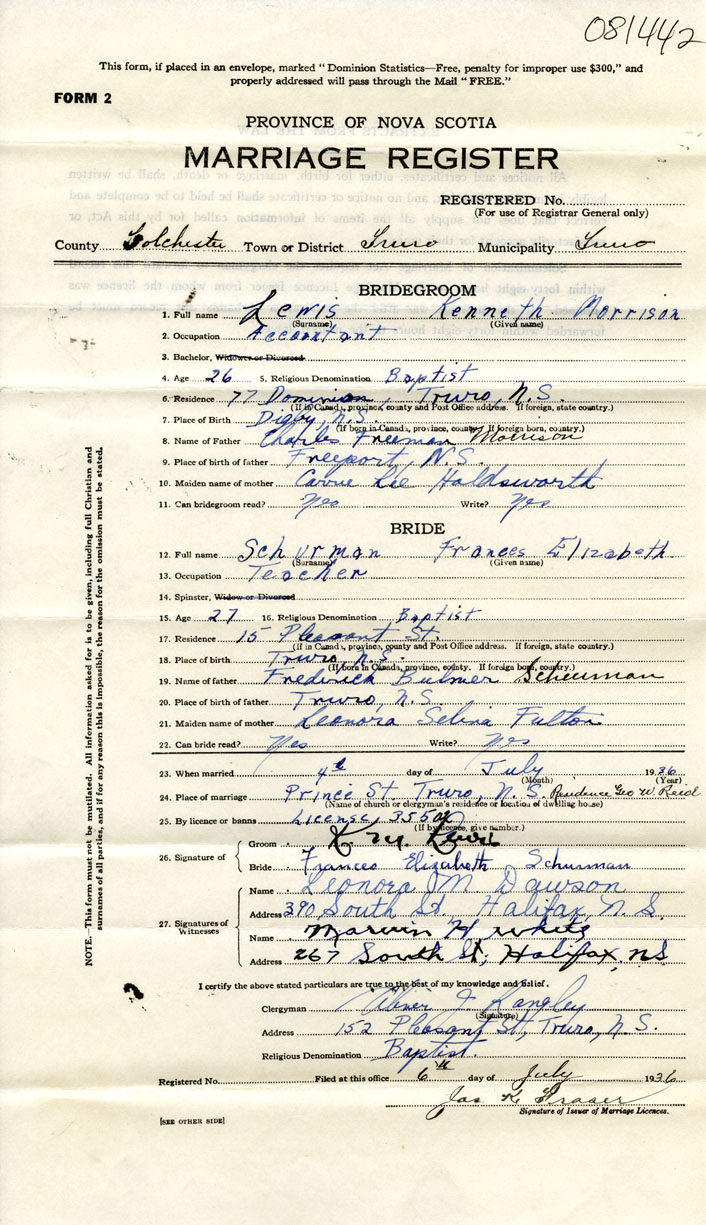 081442
This form, if placed in an envelope, marked "Dominion Statistics—Free, penalty for improper use $300," and
properly addressed will pass through the Mail "FREE."
FORM 2
PROVINCE OF NOVA SCOTIA
MARRIAGE REGISTER
REGISTERED No.
(For use of Registrar General only)
County Colchester Town or District Truro Municipality Truro
BRIDEGROOM
1. Full name Lewis Kenneth Morrison
(Surname) (Given name)
2. Occupation Accountant
3. Bachelor, Widower or Divorced
4. Age 26 5. Religious Denomination Baptist
6. Residence 77 Dominion, Truro, N.S.
(If in Canada, province, county and Post Office address. If foreign, state country.)
7. Place of Birth Digby, N.S.
(If born in Canada, province, county. If foreign born, country.)
8. Name of Father Charles Freeman Morrison
9. Place of birth of father Freeport, N.S.
10. Maiden name of mother Carrie Lee Holdsworth
11. Can bridegroom read? Yes Write? Yes
BRIDE
12. Full name Schurman Frances Elizabeth
(Surname) (Given name)
13. Occupation Teacher
14. Spinster, Widow or Divorced
15. Age 27 16. Religious Denomination Baptist
17. Residence 15 Pleasant St.
(If in Canada, province, county and Post Office address. If foreign, state country.)
18. Place of birth Truro, N.S.
(If born in Canada, province, county. If foreign born, country.)
19. Name of father Frederick Bulmer Scheurman
20. Place of birth of father Truro, N.S.
21. Maiden name of mother Leonora Selina Fulton
22. Can bride read? Yes Write? Yes
23. When married 4th day of July 1936
(Month) (Year)
24. Place of marriage Prince St. Truro, N.S. Residence Geo W. Reid
(Name of church or clergyman's residence or location of dwelling house)
25. By licence or banns License,
(If by licence, give number.)
26. Signature of
Groom K. M. Lewis
Bride Frances Elizabeth Schurman
27. Signatures of Witnesses
Name Leonora M Dawson
Address 390 South St. Halifax, N.S.
Name Marvin H White
Address 267 South St, Halifax, NS
I certify the above stated particulars are true to the best of my knowledge and belief.
Clergyman Abner J. Langley
(Signature)
Address 152 Pleasant St, Truro, N.S.
Religious Denomination Baptist.
Registered No. Filed at this office 6th day of July 1936
Jas K Fraser
Signature of Issuer of Marriage Licences.
[SEE OTHER SIDE]
NOTE.—This form must not be mutilated. All information asked for is to be given, including full Christian and
surnames of all parties, and if for any reason this is impossible, the reason for the omission must be stated.